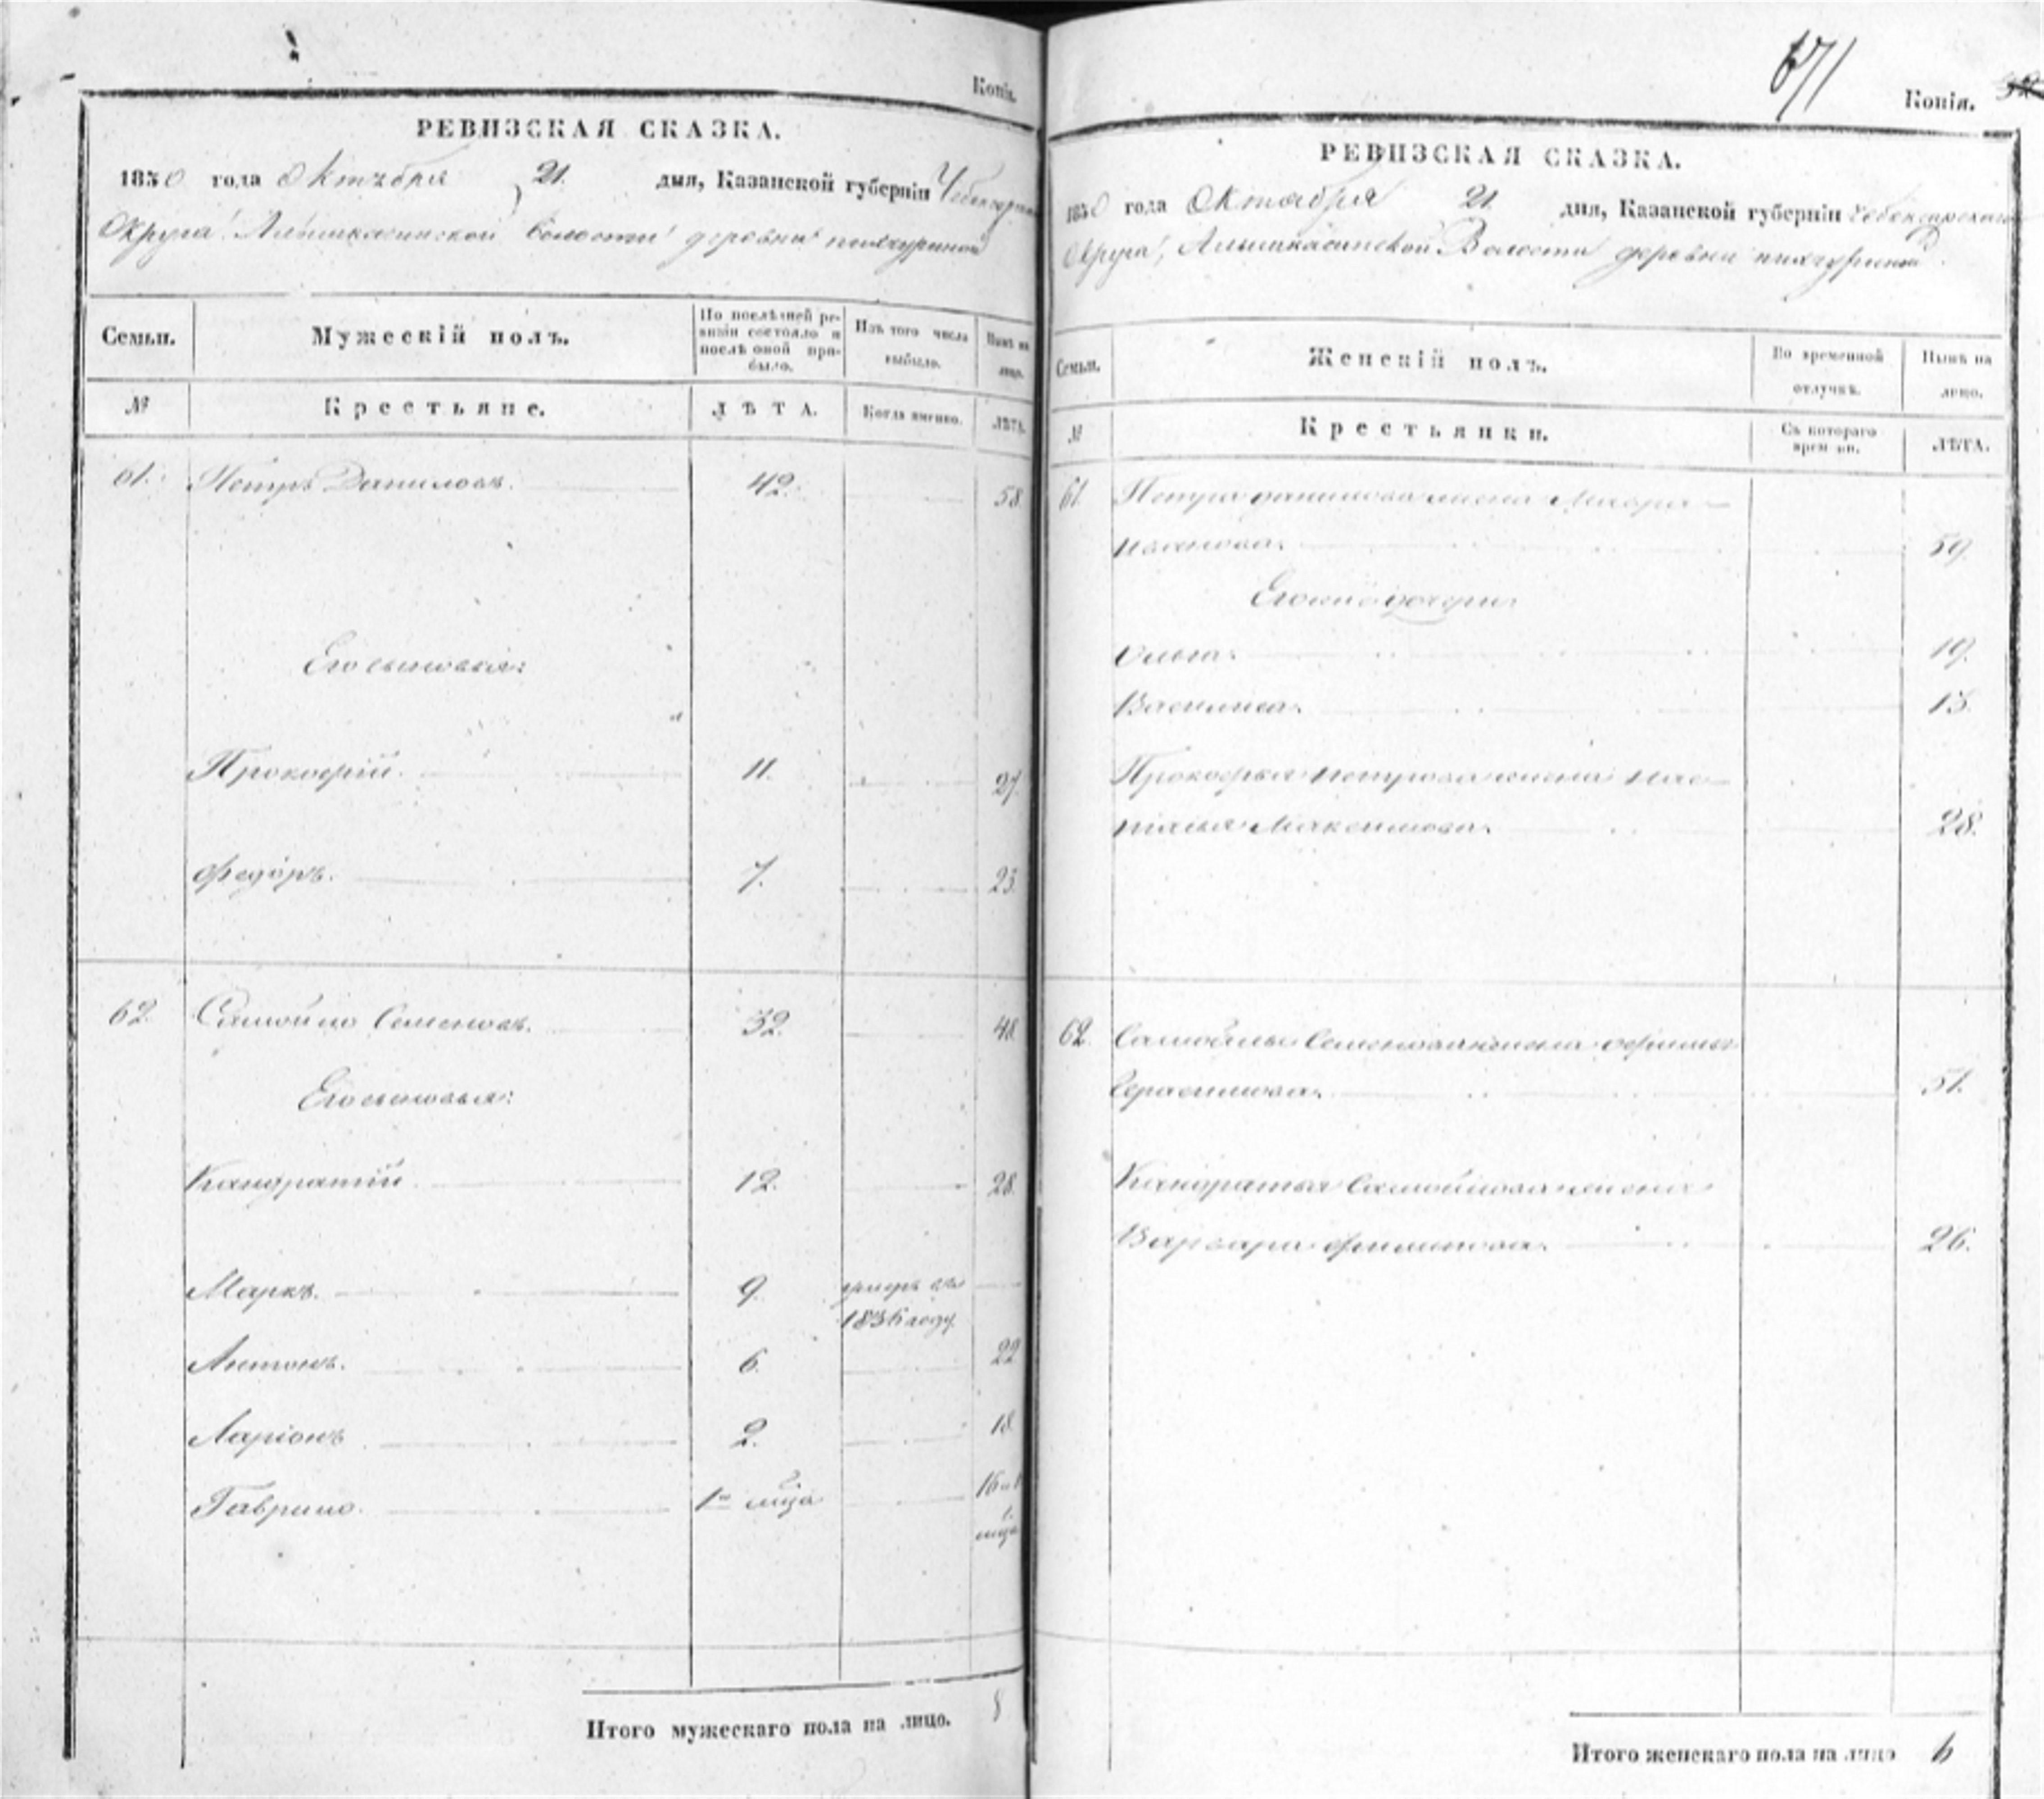 Копія.
РЕВИЗСКАЯ СКАЗКА.
1850 года Октября 21. дня, Казанской губерніи Чебоксарскаго
Округа, Алымкасинской Волости деревни
Семьи. Мужескій полъ. По послѣдней ревизіи состояло и послѣ оной прибыло. Изъ того числа выбыло. Нынѣ на лицо.
№ Крестьяне. ЛѢТА. Когда именно. ЛѢТА.
61. Петръ Даниловъ. 42. 58.
Его сыновья:
Прокофій. 11. 27.
Федоръ. 7. 23.
62. Самойло Семеновъ. 32. 48
Его сыновья:
Кандратій 12. 28.
Маркъ. 9. умеръ въ
1836 году.
Антонъ. 6. 22
Ларіонъ 2. 18
Гаврило. 1 мца 16 и 1
мца
Итого мужескаго пола на лицо. 8
671
Копія.
РЕВИЗСКАЯ СКАЗКА.
1850 года Октября 21 дня, Казанской губерніи Чебоксарскаго
Округа, Алымкасинской Волости деревни
Семьи. Женскій полъ. Во временной отлучкѣ. Нынѣ на лицо.
№ Крестьянки. Съ котораго времени. ЛѢТА.
61. Петра Данилова жена Мавра
Иванова. 59.
Его дочери
Ольга. 19.
Василиса. 15.
Прокофья Петрова жена Нас-
тасья Максимова. 28.
62. Самойлы Семенова жена Офимья
Герасимова. 51.
Кандратья Самойлова жена
Варвара Филипова. 26.
Итого женскаго пола на лицо 6